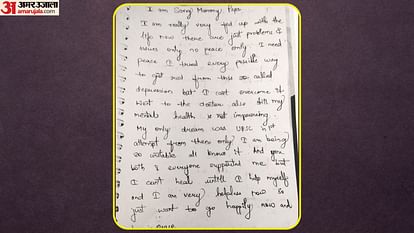 अमर उजाला
amarujala.com
I am Sorry Mummy, Papa
I am really very fed up with the
life now there are just problems &
issues only no peace only I need
peace I tried every possible way
to get rid from this so called
depression but I can't overcome it
Went to the doctor also still my
mental health is not improving.
My only dream was UPSC 1st
attempt from then only I am being
so I know it And you
both & everyone supported me but
I can't heal untill I help myself
and I am very helpless now so
just want to go happily now and